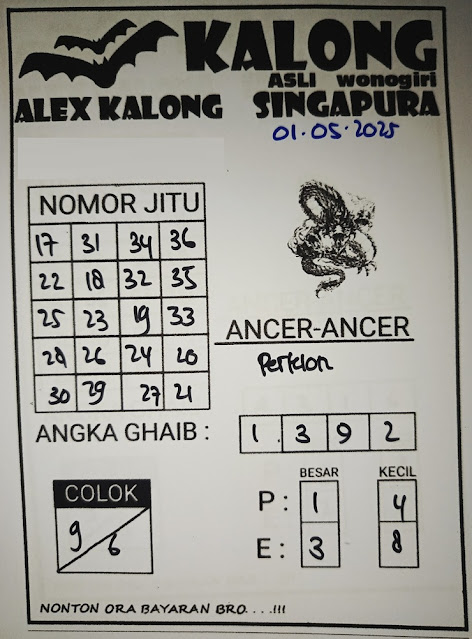 KALONG
ASLI wonogiri
ALEX KALONG SINGAPURA
01.05.2025
NOMOR JITU
17 31 34 36
22 18 32 35
25 23 19 33
28 26 24 20
30 29 27 21
ANCER-ANCER
Perklon
ANGKA GHAIB : 1 3 9 2
COLOK
9 6
BESAR KECIL
P : 1 4
E : 3 8
NONTON ORA BAYARAN BRO....!!!